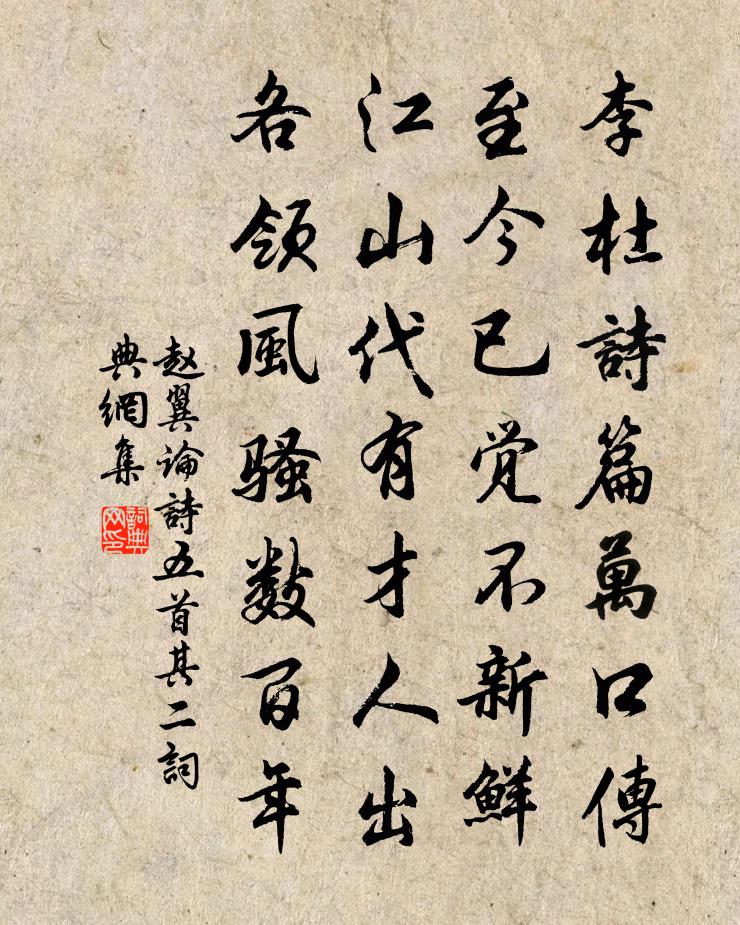 李杜詩篇萬口傳
至今已觉不新鮮
江山代有才人出
各領風骚数百年
赵翼论詩五首其二詞
典網集
詞典网印